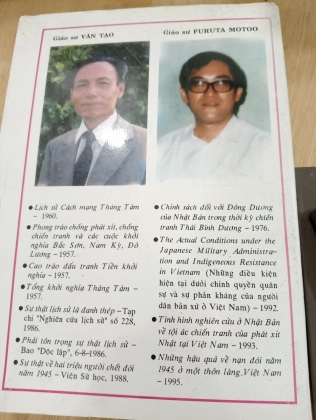 Giáo sư VĂN TẠO
Giáo sư FURUTA MOTOO
● Lịch sử Cách mạng Tháng Tám
– 1960.
● Phong trào chống phát xít, chống
chiến tranh và các cuộc khởi
nghĩa Bắc Sơn, Nam Kỳ, Đô
Lương – 1957.
● Cao trào đấu tranh Tiền khởi
nghĩa – 1957.
● Tổng khởi nghĩa Tháng Tám –
1957.
● Sự thật lịch sử là đanh thép – Tạp
chí "Nghiên cứu lịch sử" số 228,
1986.
● Phải tôn trọng sự thật lịch sử –
Báo "Độc lập", 6-8-1986.
● Sự thật về hai triệu người chết đói
năm 1945 – Viện Sử học, 1988.
● Chính sách đối với Đông Dương
của Nhật Bản trong thời kỳ chiến
tranh Thái Bình Dương – 1976.
● The Actual Conditions under the
Japanese Military Administra-
tion and Indigeneous Resistance
in Vietnam (Những điều kiện
hiện tại dưới chính quyền quân
sự và sự phản kháng của người
dân bản xứ ở Việt Nam) – 1992.
● Tình hình nghiên cứu ở Nhật Bản
về tội ác chiến tranh của phát xít
Nhật tại Việt Nam – 1993.
● Những hậu quả về nạn đói năm
1945 ở một thôn làng Việt Nam
– 1995.